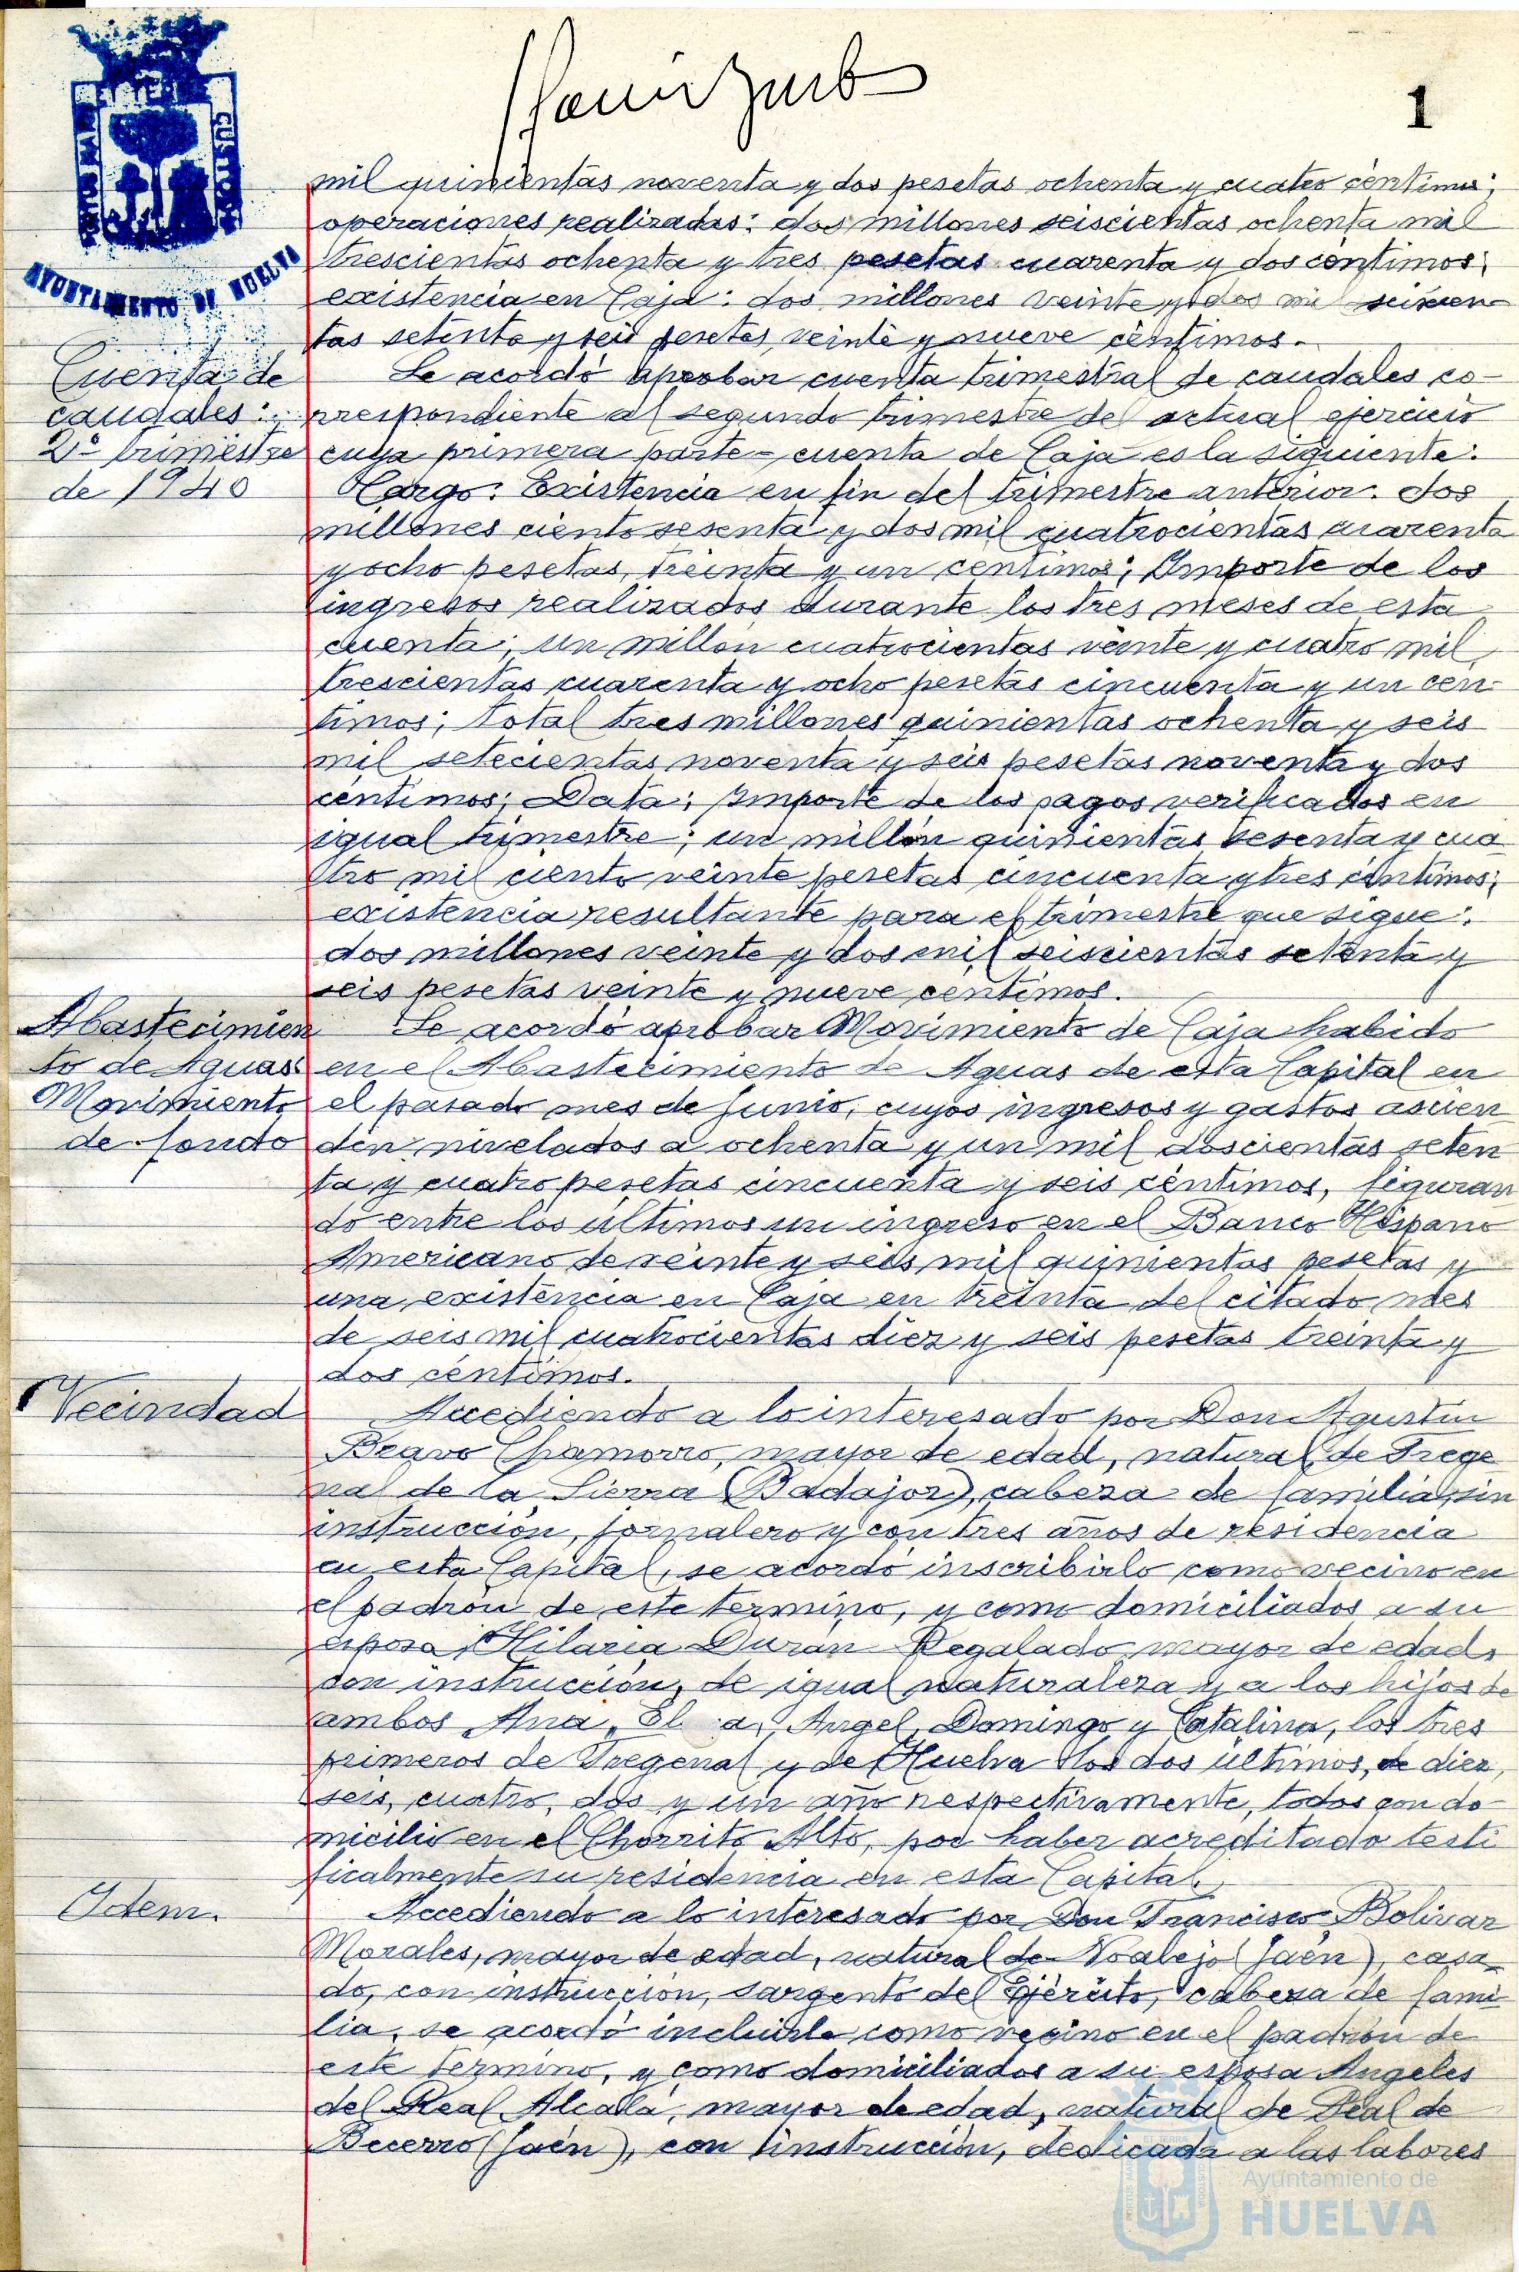 1
PORTUS MARIS ET TERRE CUSTODIA
AYUNTAMIENTO DE HUELVA
mil quinientas noventa y dos pesetas ochenta y cuatro céntimos;
operaciones realizadas: dos millones seiscientas ochenta mil
trescientas ochenta y tres pesetas cuarenta y dos céntimos;
existencia en Caja: dos millones veinte y dos mil seiscien-
tas setenta y seis pesetas, veinte y nueve céntimos.
Cuenta de
caudales:
2º trimestre
de 1940
Se acordó aprobar cuenta trimestral de caudales co-
rrespondiente al segundo trimestre del actual ejercicio
cuya primera parte - cuenta de Caja es la siguiente:
Cargo: Existencia en fin del trimestre anterior: dos
millones ciento sesenta y dos mil cuatrocientas cuarenta
y ocho pesetas, treinta y un centimos; Importe de los
ingresos realizados durante los tres meses de esta
cuenta; un millon cuatrocientas veinte y cuatro mil,
trescientas cuarenta y ocho pesetas cincuenta y un cen-
timos; total tres millones quinientas ochenta y seis
mil setecientas noventa y seis pesetas noventa y dos
céntimos; Data; Importe de los pagos verificados en
igual trimestre; un millón quinientas sesenta y cua
tro mil ciento veinte pesetas cincuenta y tres céntimos;
existencia resultante para el trimestre que sigue:
dos millones veinte y dos mil seiscientas setenta y
seis pesetas veinte y nueve centimos.
Abastecimien
to de Aguas
Movimiento
de fondo
Se acordó aprobar Movimiento de Caja habido
en el Abastecimiento de Aguas de esta Capital en
el pasado mes de Junio, cuyos ingresos y gastos ascien
den nivelados a ochenta y un mil doscientas seten
ta y cuatro pesetas cincuenta y seis céntimos, figuran
do entre los últimos un ingreso en el Banco Hispano
Americano de veinte y seis mil quinientas pesetas y
una existencia en Caja en treinta del citado mes
de seis mil cuatrocientas diez y seis pesetas treinta y
dos céntimos.
Vecindad
Accediendo a lo interesado por Don Agustin
Bravo Chamorro, mayor de edad, natural de Frege
nal de la Sierra (Badajoz), cabeza de familia, sin
instrucción, jornalero y con tres años de residencia
en esta Capital, se acordó inscribirlo como vecino en
el padrón de este termino, y como domiciliados a su
esposa, Hilaria Durán Regalado, mayor de edad,
con instrucción, de igual naturaleza y a los hijos de
ambos Ana, Angel, Domingo y Catalina, los tres
primeros de Fregenal y de Huelva los dos últimos, de diez,
seis, cuatro, dos y un año respectivamente, todos con do-
micilio en el Chorrito Alto, por haber acreditado testi
ficalmente su residencia en esta Capital,
Idem.
Accediendo a lo interesado por Don Francisco Bolivar
Morales, mayor de edad, natural de Noalejo (Jaén), casa-
do, con instrucción, sargento del Ejército, cabeza de fami-
lia, se acordó incluirlo como vecino en el padrón de
este termino, y como domiciliados a su esposa Angeles
del Real Alcalá, mayor de edad, natural de Peal de
Becerro (Jaén), con instrucción, dedicada a las labores
Ayuntamiento de
HUELVA